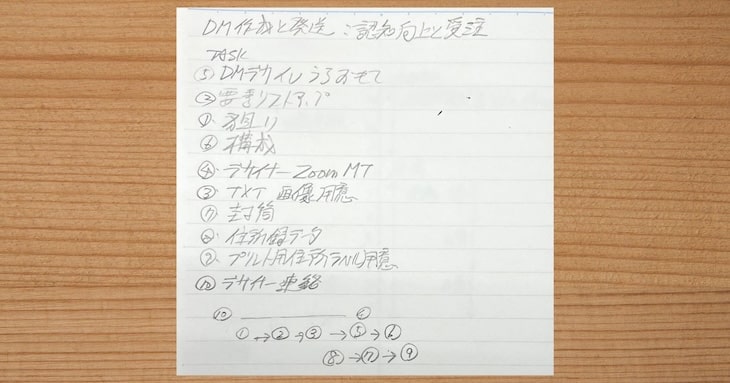 DM作成と発送：認知向上と受注
TASK
⑤ DMデザイン うらおもて
② 要素リストアップ
① 狙い
⑥ 構成
④ デザイナー Zoom MT
③ TXT 画像用意
⑦ 封筒
⑧ 住所録データ
⑨ プリント用住所ラベル用意
⑩ デザイナー連絡
⑩ ④
① → ② → ③ → ⑤ → ⑥
⑧ → ⑦ → ⑨